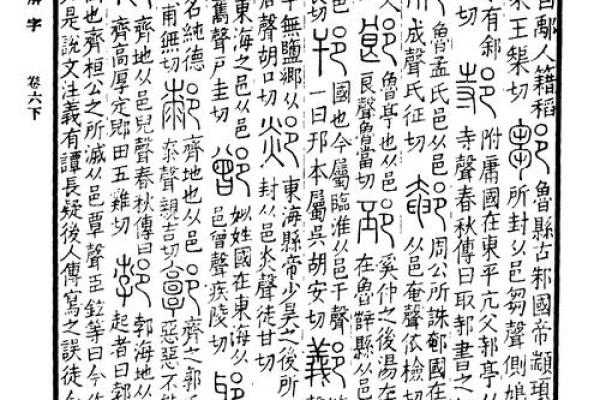 曰鄅人籍稻 鄒 魯縣古邾國帝顓頊
王榘切 所封从邑芻聲側鳩
有䣄 邿 附庸國在東平亢父邿亭从
切 寺聲春秋傳曰取邿書之
魯孟氏邑从邑 周公所誅䣍國在
成聲氏征切 䣍 从邑奄聲依檢切
郎 魯亭也从邑 邳 奚仲之後湯左
良聲魯當切 在魯辥縣从邑
邗 國也今屬臨淮从邑干聲
切 一曰邗本屬吳胡安切
章無鹽鄉从 郯 東海縣帝少昊之後所
后聲胡口切 封从邑炎聲徒甘切
東海之邑从邑 鄫 姒姓國在東海从
巂聲戶圭切 邑曾聲疾陵切
名純德 齊地也从邑 郭 齊之郭氏
甫無切 桼聲親吉切 惡惡不能
齊地从邑兒聲春秋傳曰 郣 郭海地从
齊高厚定郳田五雞切 起者曰郣
也齊桓公之所滅从邑覃聲臣鉉等曰今作
是說文注義有譚長疑後人傳寫之誤徒含
解字 卷六下